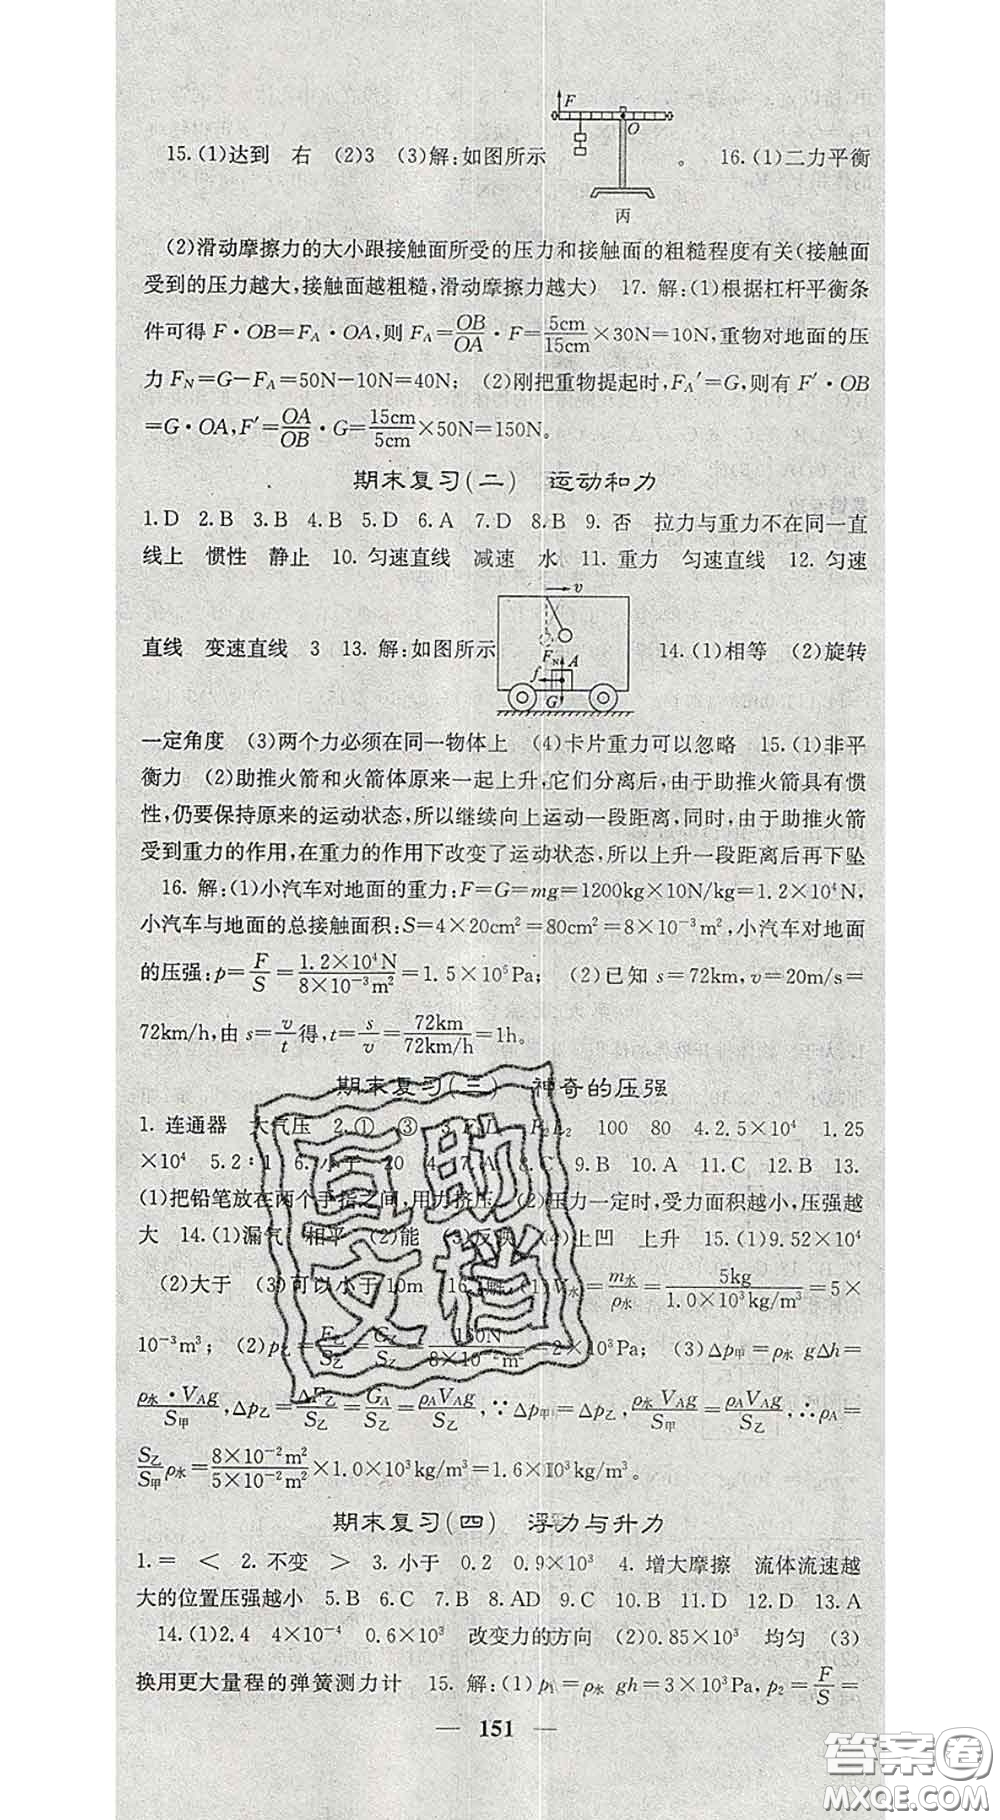 F
O
15.(1)达到 右 (2)3 (3)解:如图所示 。 16.(1)二力平衡
丙
(2)滑动摩擦力的大小跟接触面所受的压力和接触面的粗糙程度有关(接触面
受到的压力越大,接触面越粗糙,滑动摩擦力越大) 17. 解:(1)根据杠杆平衡条
件可得 F·OB=F_A·OA,则 F_A=OB/OA·F=5cm/15cm×30N=10N,重物对地面的压
力 F_N=G-F_A=50N-10N=40N; (2)刚把重物提起时,F_A′=G,则有 F′·OB
=G·OA,F′=OA/OB·G=15cm/5cm×50N=150N。
期末复习(二) 运动和力
1.D 2.B 3.B 4.B 5.D 6.A 7.D 8.B 9. 否 拉力与重力不在同一直
线上 惯性 静止 10. 匀速直线 减速 水 11. 重力 匀速直线 12. 匀速
v
直线 变速直线 3 13. 解:如图所示 14.(1)相等 (2)旋转
F_N A
f
G
一定角度 (3)两个力必须在同一物体上 (4)卡片重力可以忽略 15.(1)非平
衡力 (2)助推火箭和火箭体原来一起上升,它们分离后,由于助推火箭具有惯
性,仍要保持原来的运动状态,所以继续向上运动一段距离,同时,由于助推火箭
受到重力的作用,在重力的作用下改变了运动状态,所以上升一段距离后再下坠
16. 解:(1)小汽车对地面的重力:F=G=mg=1200kg×10N/kg=1.2×10⁴N,
小汽车与地面的总接触面积:S=4×20cm²=80cm²=8×10⁻³m²,小汽车对地面
的压强:p=F/S=1.2×10⁴N/8×10⁻³m²=1.5×10⁵Pa; (2)已知 s=72km,v=20m/s=
72km/h,由 s=v/t得,t=s/v=72km/72km/h=1h。
期末复习(三) 神奇的压强
1. 连通器 大气压 2.① ③ 3. F₂L₂ 100 80 4.2.5×10⁴ 1.25
×10⁴ 5.2∶1 6.小于 20 4 7.A 8.C 9.B 10.A 11.C 12.B 13.
(1)把铅笔放在两个手指之间,用力挤压 (2)压力一定时,受力面积越小,压强越
大 14.(1)漏气 相平 (2)能 (3)反映 (4)上凹 上升 15.(1)9.52×10⁴
(2)大于 (3)可以小于10m 16.解:(1)V水=m水/ρ水=5kg/1.0×10³kg/m³=5×
10⁻³m³; (2)p乙=F乙/S乙=G乙/S乙=160N/8×10⁻²m²=2×10³Pa; (3)Δp甲=ρ水 gΔh=
ρ水·V_Ag/S甲,Δp乙=ΔF乙/S乙=G_A/S乙=ρ_AV_Ag/S乙,∵Δp甲=Δp乙,ρ水V_Ag/S甲=ρ_AV_Ag/S乙,∴ρ_A=
S乙/S甲ρ水=8×10⁻²m²/5×10⁻²m²×1.0×10³kg/m³=1.6×10³kg/m³。
期末复习(四) 浮力与升力
1.= < 2. 不变 > 3. 小于 0.2 0.9×10³ 4. 增大摩擦 流体流速越
大的位置压强越小 5.B 6.C 7.B 8.AD 9.C 10.B 11.D 12.D 13.A
14.(1)2.4 4×10⁻⁴ 0.6×10³ 改变力的方向 (2)0.85×10³ 均匀 (3)
换用更大量程的弹簧测力计 15. 解:(1)p₁=ρ水 gh=3×10³Pa,p₂=F/S=
— 151 —
互助
文档
答案圈
MXQE.COM